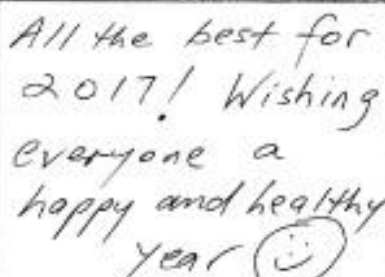 All the best for
2017! Wishing
everyone a
happy and healthy
year